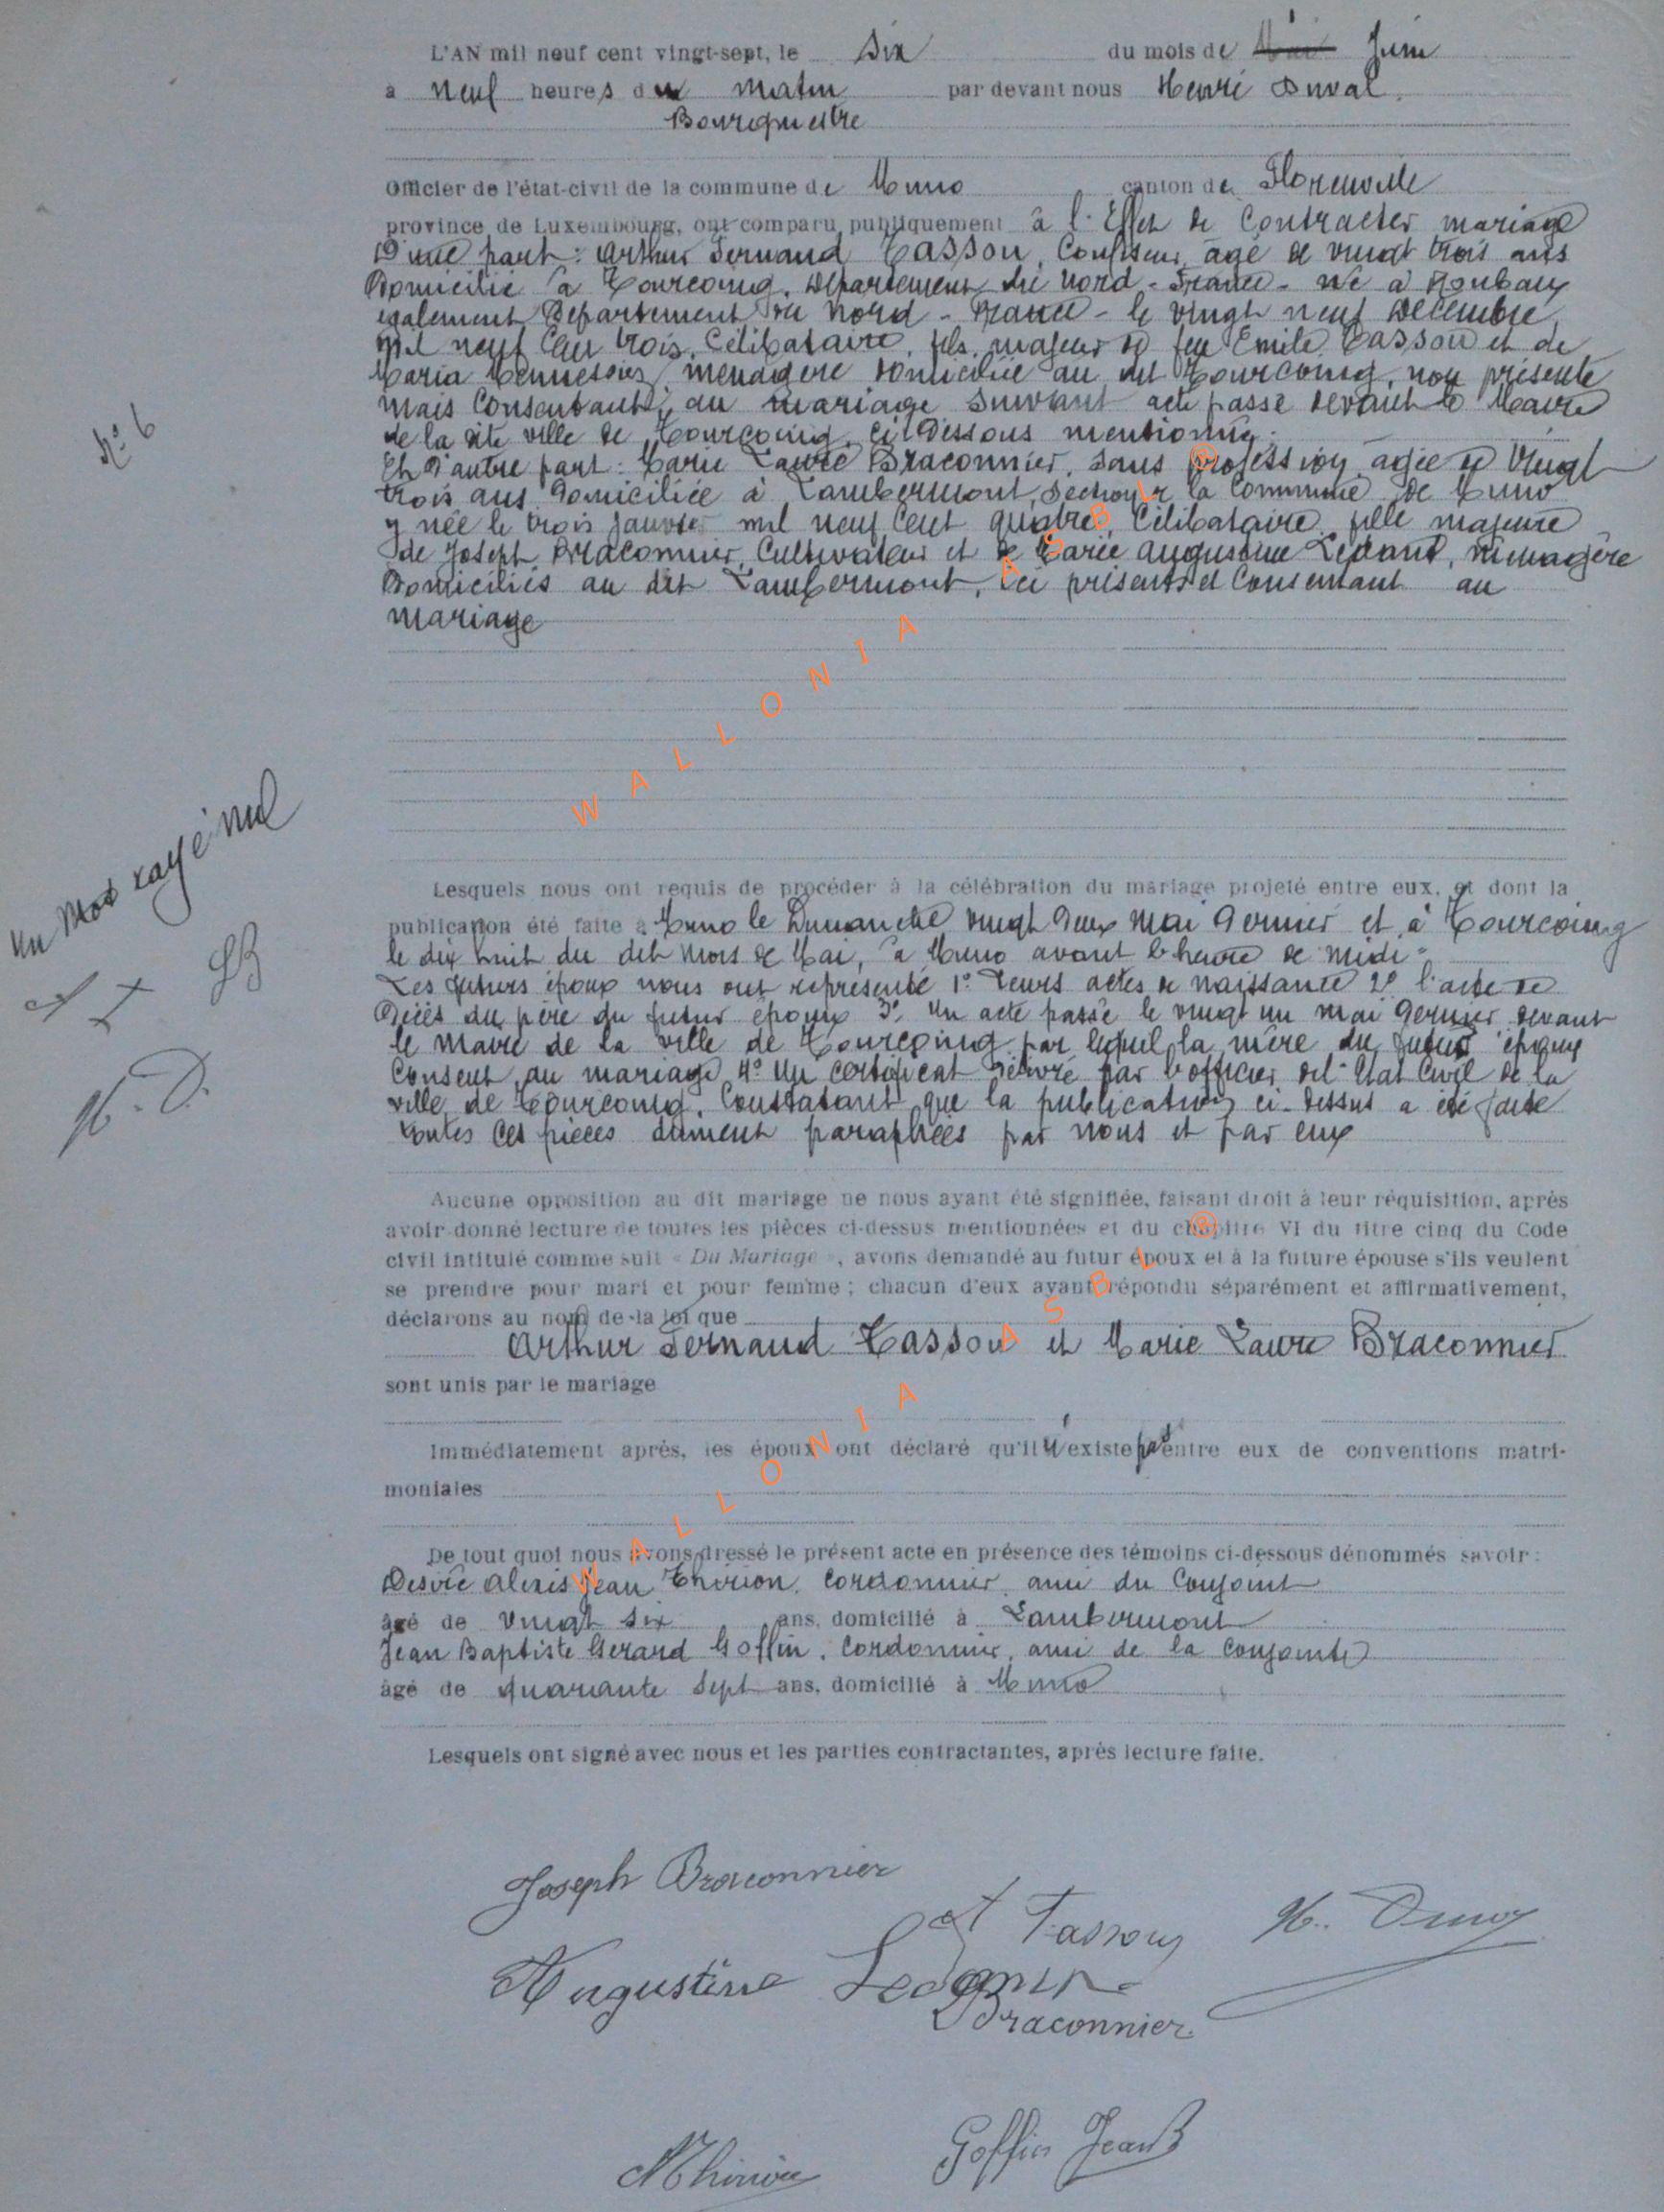 L'AN mil neuf cent vingt-sept, le six du mois de Mai Juin
à neuf heures du matin par devant nous Henri Duval.
Bourgmestre
Officier de l'état-civil de la commune de Muno canton de Florenville
province de Luxembourg, ont comparu publiquement à l'Effet de Contracter mariage
D'une part: Arthur Fernand Tasson, Confiseur, âgé de vingt trois ans
Domicilié à Tourcoing, Département du Nord - France - né à Roubaix
également Département du Nord - France - le vingt neuf Décembre
mil neuf Cent trois, Célibataire, fils majeur de feu Emile Tasson et de
Maria ménagère domiciliée au dit Tourcoing, non présente
mais Consentante au mariage suivant acte passé devant le Maire
de la dite ville de Tourcoing, ci Dessous mentionné;
Et D'autre part: Marie Laure Braconnier, sans profession, agée de Vingt
trois ans Domiciliée à Lambermont, Section de la Commune de Muno
y née le trois Janvier mil neuf Cent quatre, Célibataire, fille majeure
de Joseph Braconnier, Cultivateur et de Marie Augustine ménagère
Domiciliés au dit Lambermont, ici présents et Consentant au
mariage
N° 6
Un Mot rayé nul
A T LB
H. D.
Lesquels nous ont requis de procéder à la célébration du mariage projeté entre eux, et dont la
publication été faite à Muno le Dimanche vingt Deux Mai Dernier et à Tourcoing
le dix huit du dit Mois de Mai, à Muno avant l'heure de midi
Les futurs époux nous ont représenté 1° Leurs actes de naissance 2° l'acte de
Décès du père du futur époux 3° Un acte passé le vingt un mai Dernier, devant
le Maire de la ville de Tourcoing par lequel la mère du futur époux
Consent au mariage 4° Un certificat Délivré par l'officier de l'Etat Civil de la
ville de Tourcoing, Constatant que la publication ci-dessus a été faite
toutes Ces pièces dument paraphées par nous et par eux
Aucune opposition au dit mariage ne nous ayant été signifiée, faisant droit à leur réquisition, après
avoir donné lecture de toutes les pièces ci-dessus mentionnées et du chapitre VI du titre cinq du Code
civil intitulé comme suit « Du Mariage », avons demandé au futur époux et à la future épouse s'ils veulent
se prendre pour mari et pour femme; chacun d'eux ayant répondu séparément et affirmativement,
déclarons au nom de la loi que
Arthur Fernand Tasson et Marie Laure Braconnier
sont unis par le mariage
Immédiatement après, les époux ont déclaré qu'il n'existe pas entre eux de conventions matri-
moniales
De tout quoi nous avons dressé le présent acte en présence des témoins ci-dessous dénommés savoir:
Désiré Alexis Jean Thirion, Cordonnier, ami du Conjoint
âgé de Vingt six ans, domicilié à Lambermont
Jean Baptiste Gerard Goffin, Cordonnier, ami de la Conjointe
âgé de quarante sept ans, domicilié à Muno
Lesquels ont signé avec nous et les parties contractantes, après lecture faite.
Joseph Braconnier
A Tasson H. Duval
Augustine
L Braconnier
Thirion Goffin Jean B
WALLONIA ASBL ®
WALLONIA ASBL ®